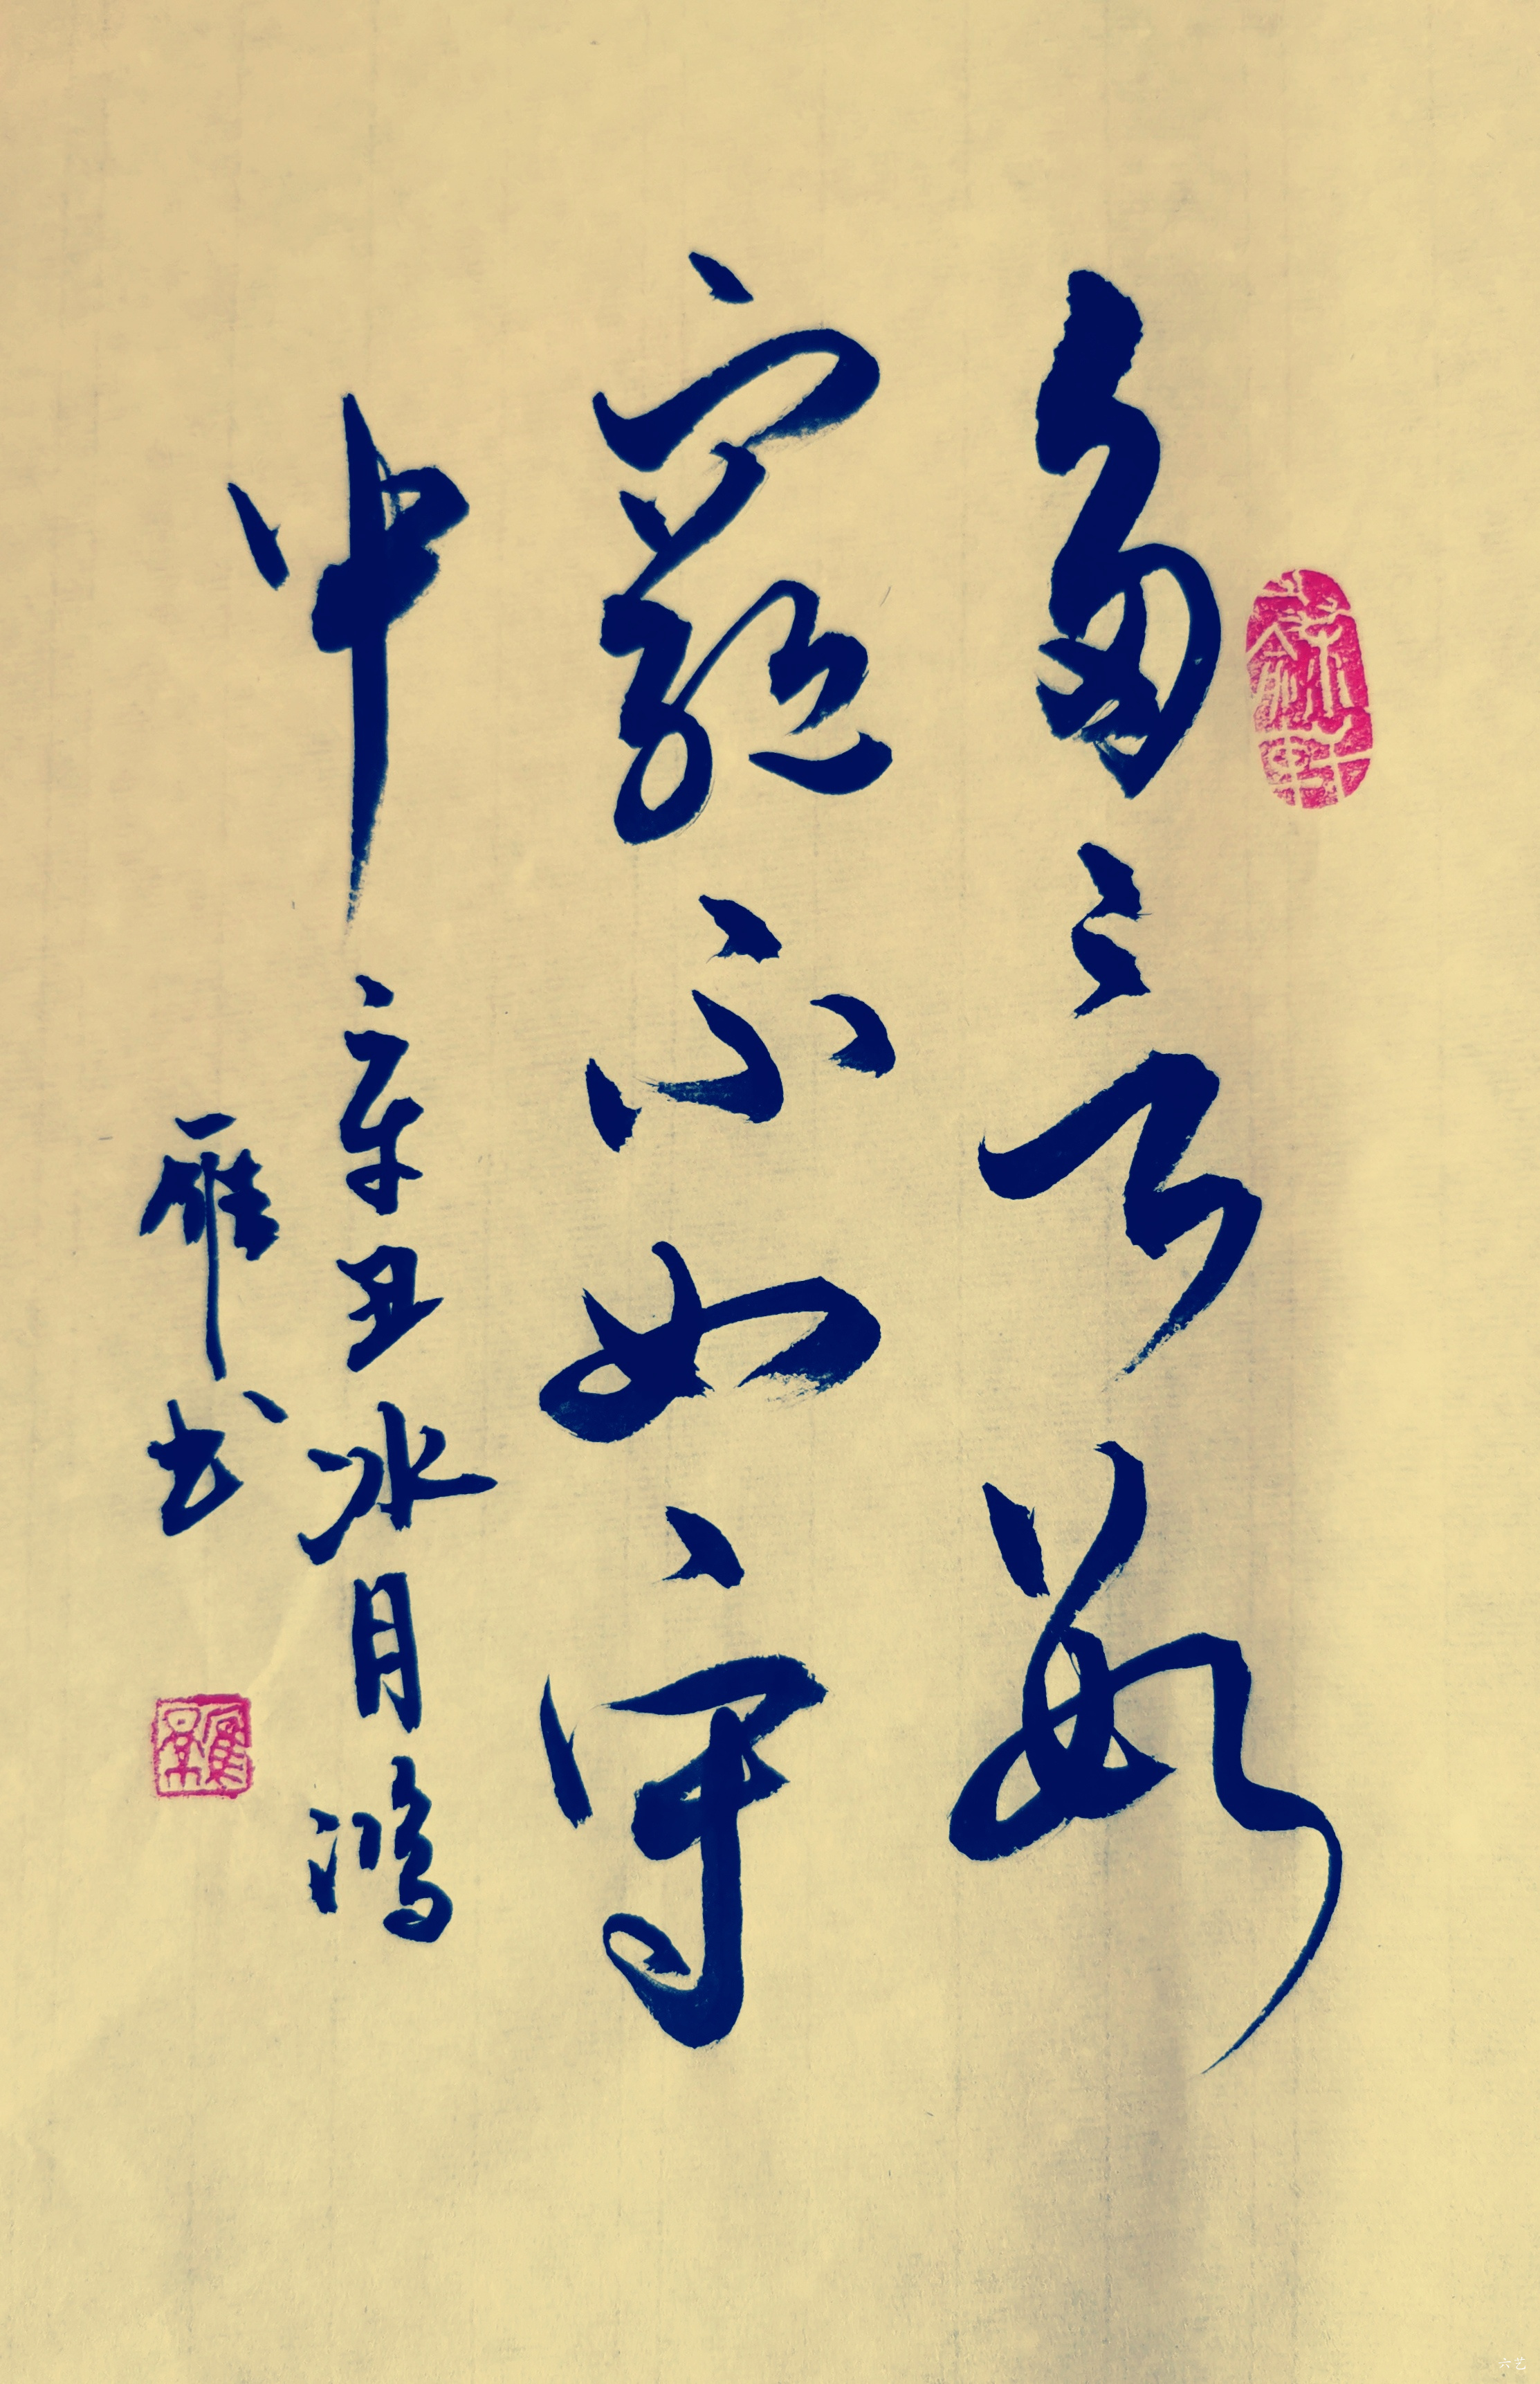 多言數
窮不如守
中
辛丑冰月鴻
雁书
六艺